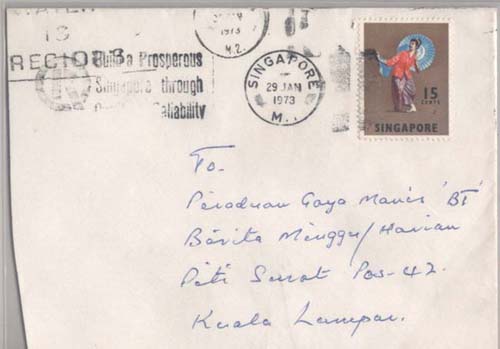 WATER
IS
PRECIOUS
Build a Prosperous
Singapore through
Reliability
1973
M.2.
SINGAPORE
29 JAN
1973
M.
15
CENTS
SINGAPORE
To.
Peraduan Gaya Manis 'BT'
Berita Minggu/Harian
Peti Surat Pos-42.
Kuala Lumpur.